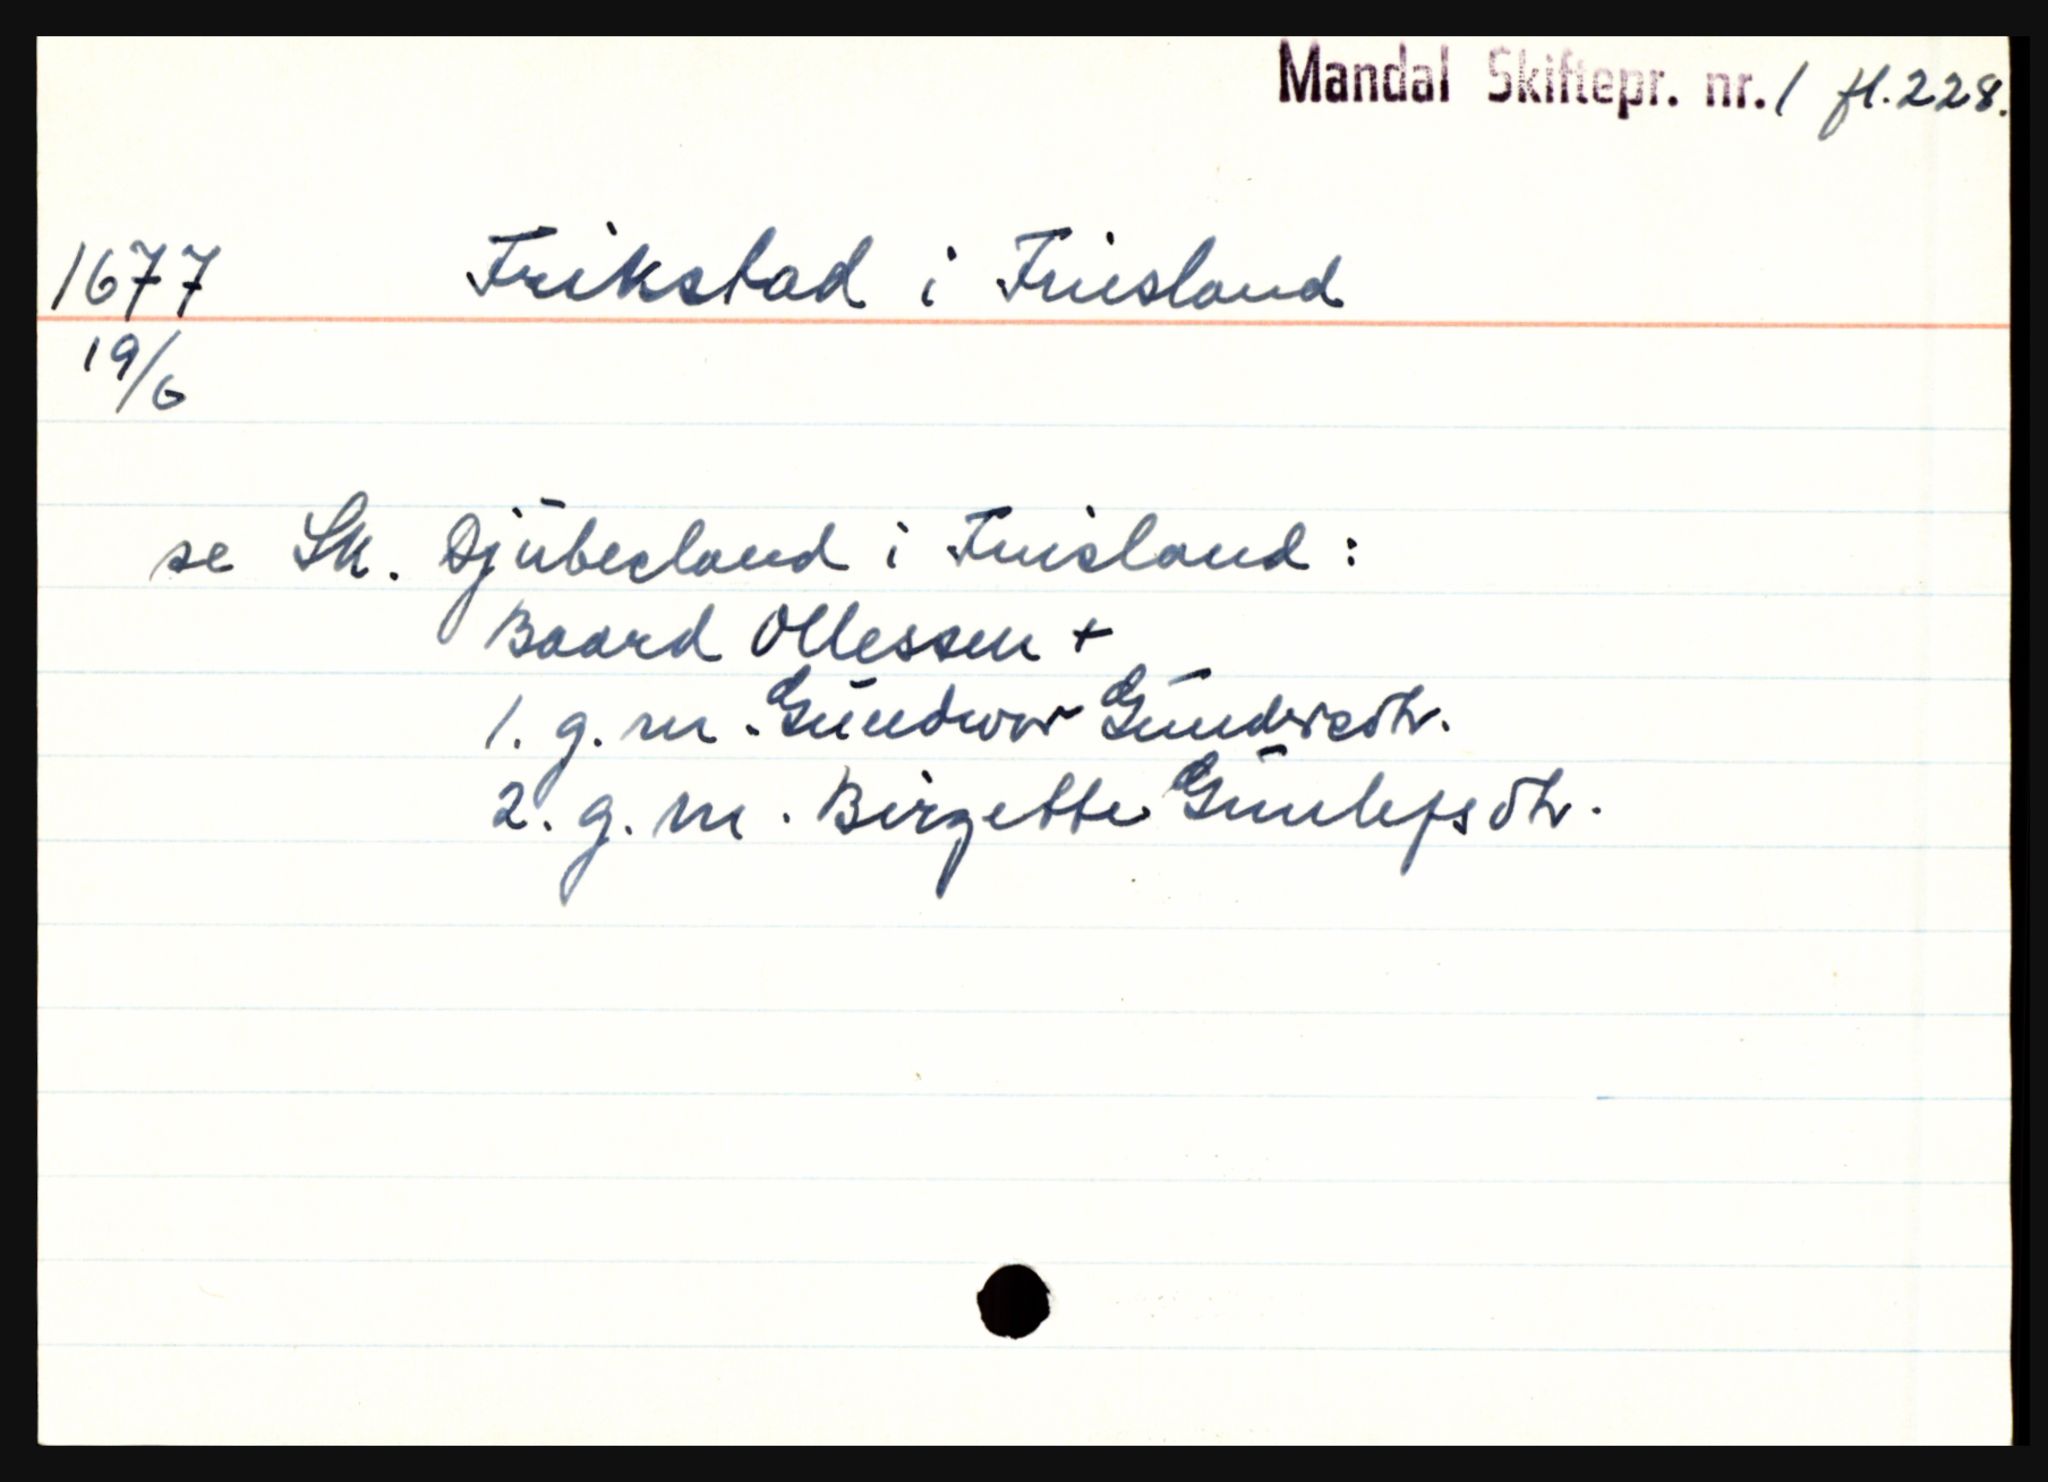 Mandal Skiftepr. nr. 1 fl. 228.
1677 Frikstad i Friesland
19/6
se Sk. Djübesland i Friisland:
Baard Ollessen +
1. g. m. Gündwor Gündersdtr.
2. g. m. Birgette Günlefsdtr.